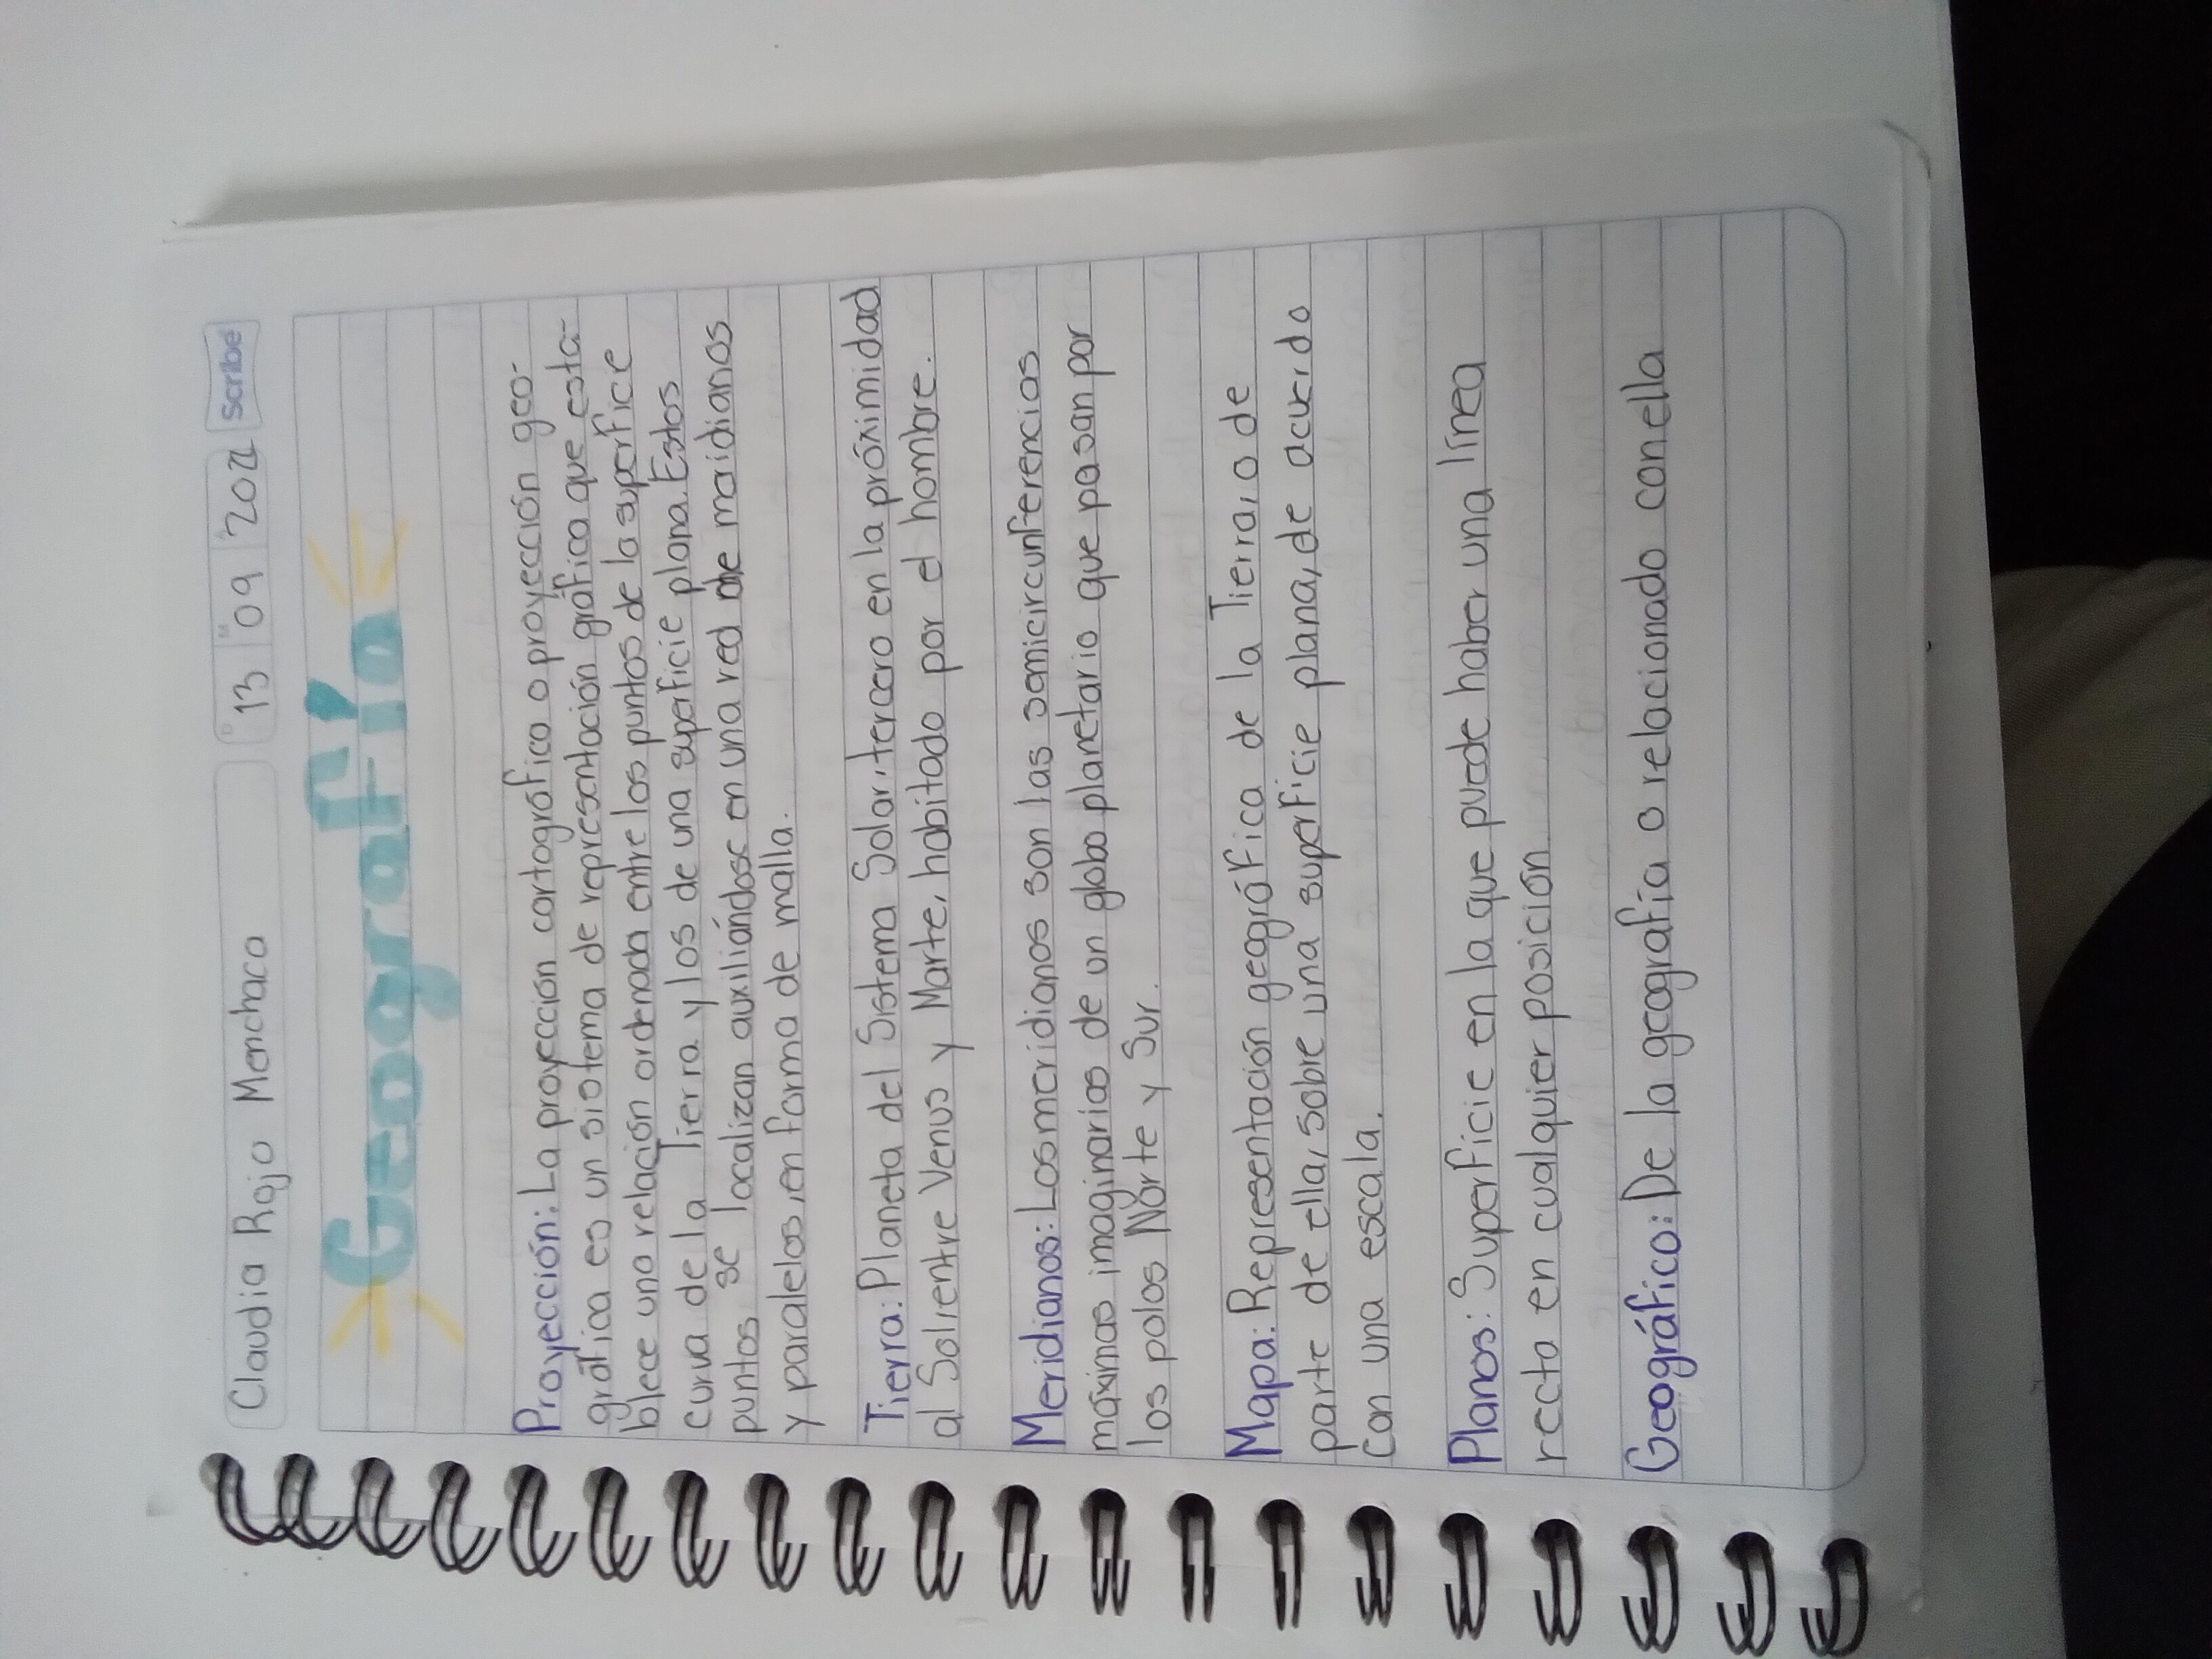 Claudia Rojo Menchaca
D 13 M 09 2021 scribe
Geografía
Proyección: La proyección cartográfica o proyección geo-
gráfica es un sistema de representación gráfica que esta-
blece una relación ordenada entre los puntos de la superfice
curva de la Tierra y los de una superficie plana. Estos
puntos se localizan auxiliándose en una red de maridianos
y paralelos, en forma de malla.
Tierra: Planeta del Sistema Solar, tercero en la próximidad
al Sol, entre Venus y Marte, habitado por el hombre.
Meridianos: Los meridianos son las semicircunferencias
máximas imaginarias de un globo planetario que pasan por
los polos Norte y Sur.
Mapa: Representación geográfica de la Tierra, o de
parte de ella, sobre una superficie plana, de acuerdo
con una escala.
Planos: Superficie en la que puede haber una línea
recta en cualquier posición
Geográfico: De la geografía o relacionado con ella